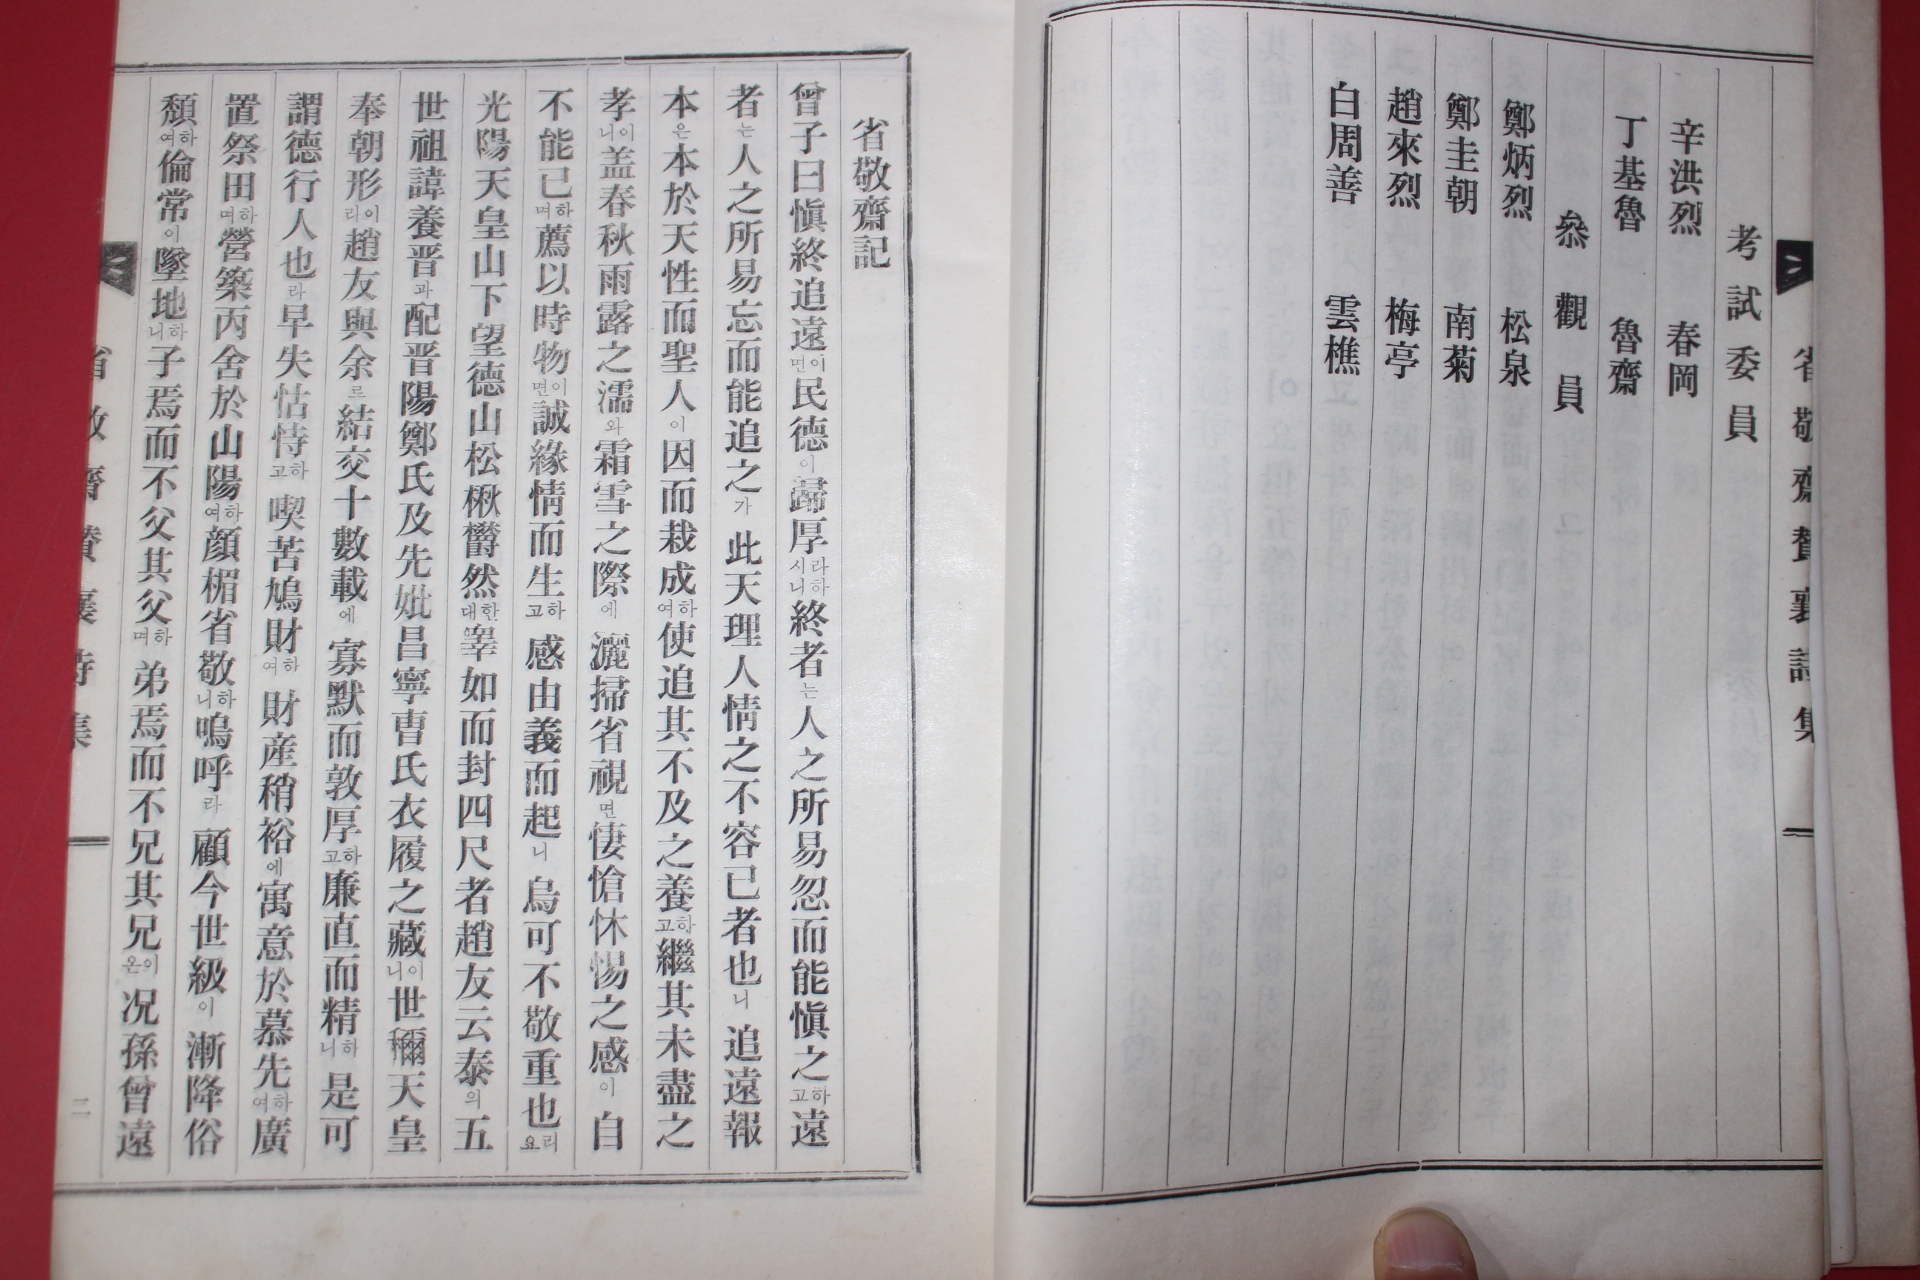 省敬齋贊襄詩集
考試委員
辛洪烈 春岡
丁基魯 魯齋
叅觀員
鄭炳烈 松泉
鄭圭朝 南菊
趙來烈 梅亭
白周善 雲樵
省敬齋記
曾子曰愼終追遠이면民德이歸厚라하시니終者는人之所易忽而能愼之하고遠
者는人之所易忘而能追之가此天理人情之不容已者也니追遠報
本은本於天性而聖人이因而栽成하여使追其不及之養하고繼其未盡之
孝이니盖春秋雨露之濡와霜雪之際에灑掃省視면悽愴怵惕之感이自
不能已하며薦以時物이면誠緣情而生하고感由義而起니烏可不敬重也리요
光陽天皇山下望德山松楸欝然한대睾如而封四尺者趙友云泰의五
世祖諱養晋과配晋陽鄭氏及先妣昌寧曺氏衣履之藏이니世穪天皇
奉朝形이라趙友與余로結交十數載에寡默而敦厚하고廉直而精하니是可
謂德行人也라早失怙恃하고喫苦鳩財하여財產稍裕에寓意於慕先하여廣
置祭田하며營築丙舍於山陽하여顔楣省敬하니嗚呼라顧今世級이漸降俗
頹하여倫常이墜地하니子焉而不父其父하며弟焉而不兄其兄이온况孫曾遠
省敬齋贊襄詩集 二